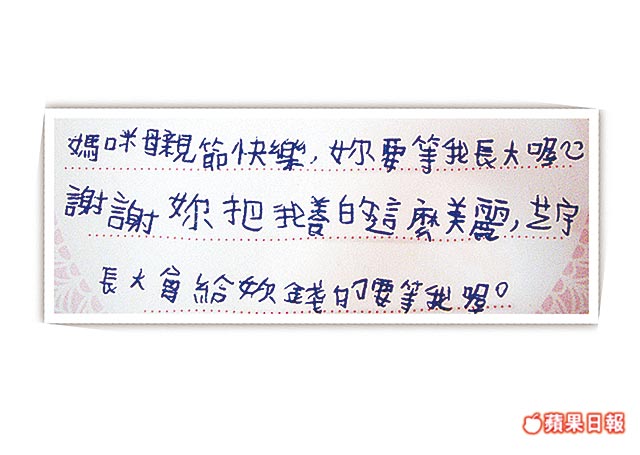 媽咪母親節快樂,妳要等我長大喔♡
謝謝妳把我養的這麼美麗,芝宇
長大會給妳錢的要等我喔。
蘋果日報